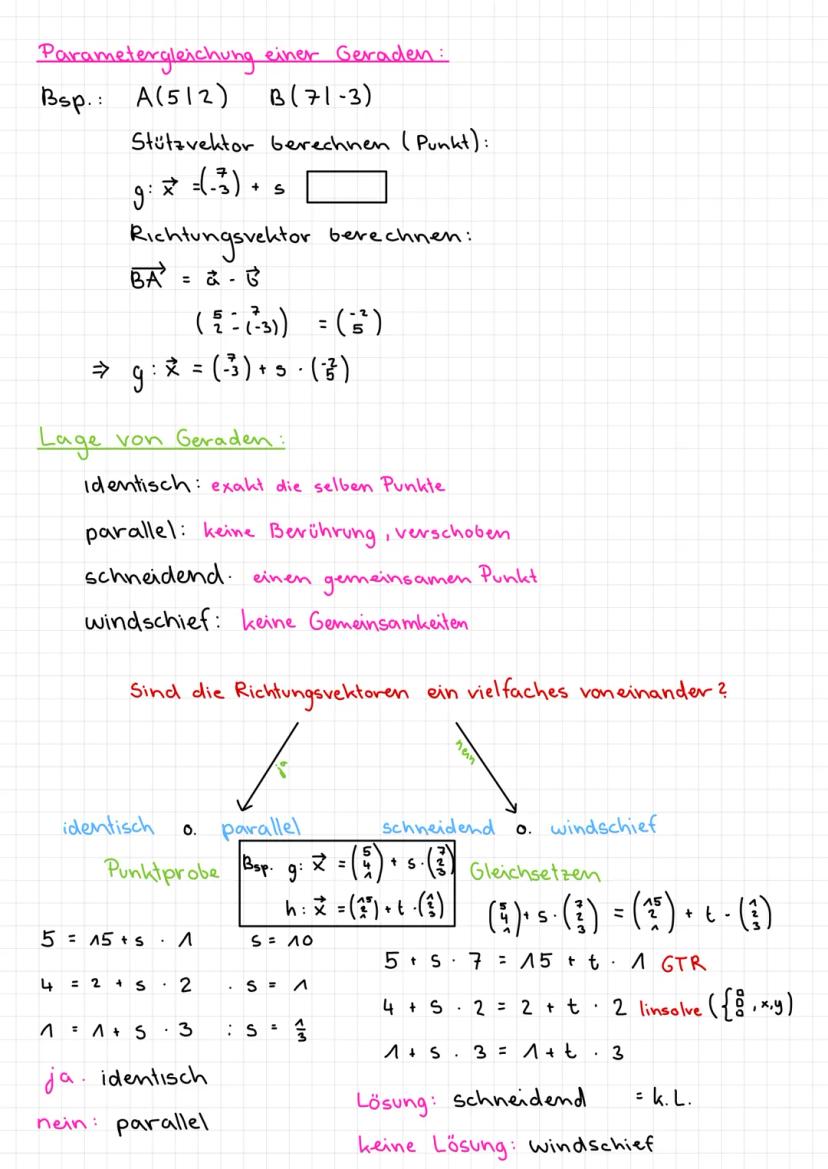 Parametergleichung einer Geraden:
Bsp.: A(5|2) B(7|-3)
Stützvektor berechnen (Punkt):
g: x⃗ = (7 -3) + s
Richtungsvektor berechnen:
BA⃗ = a⃗ - b⃗
(5 - 7 2 - (-3)) = (-2 5)
⇒ g: x⃗ = (7 -3) + s · (-2 5)
Lage von Geraden:
identisch: exakt die selben Punkte
parallel: keine Berührung, verschoben
schneidend· einen gemeinsamen Punkt
windschief: keine Gemeinsamkeiten
Sind die Richtungsvektoren ein vielfaches voneinander?
ja nein
identisch o. parallel schneidend o. windschief
Punktprobe Bsp. g: x⃗ = (5 4 1) + s·(7 2 3) Gleichsetzen
h: x⃗ = (15 2 1) + t·(1 2 3) (5 4 1) + s·(7 2 3) = (15 2 1) + t·(1 2 3)
5 = 15 + s · 1 s = 10
5 + s · 7 = 15 + t · 1 GTR
4 = 2 + s · 2 · s = 1
4 + s · 2 = 2 + t · 2 linsolve ({▯▯▯, x,y)
1 = 1 + s · 3 : s = 1/3
1 + s · 3 = 1 + t · 3
ja· identisch
Lösung: schneidend = k.L.
nein: parallel
keine Lösung: windschief